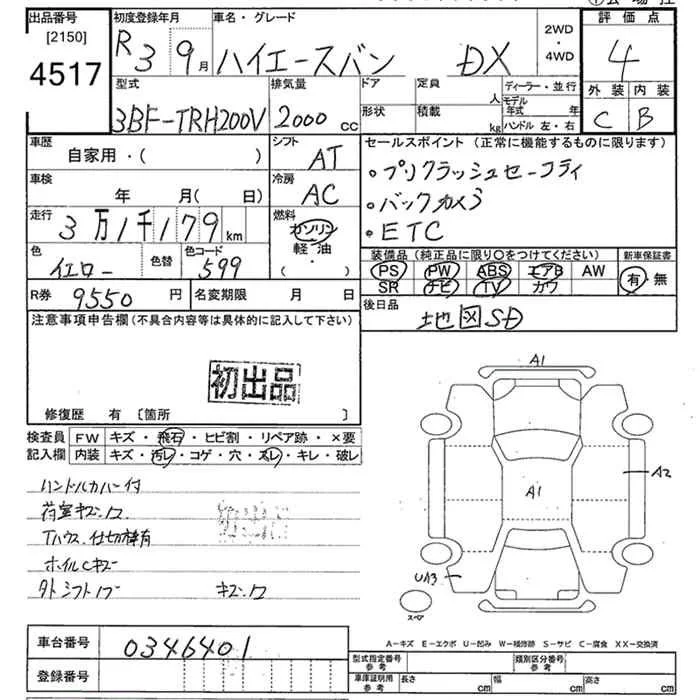 出品番号 初度登録年月 車名・グレード 評価点
[2150]
4517 R3 9月 ハイエースバン DX 2WD・4WD 4
外装 内装
C B
型式 排気量 ドア 定員 人 ディーラー・並行
3BF-TRH200V 2000cc 形状 積載 kg モデル年式 年
ハンドル 左・右
車歴 シフト セールスポイント(正常に機能するものに限ります)
自家用・( ) AT ・プリクラッシュセーフティ
車検 冷房 ・バックカメラ
年 月(日) AC ・ETC
走行 燃料
3万1千179km ガソリン
軽・油
・( )
色 色替 色コード 装備品(純正品に限り〇をつけてください) 新車保証書
イエロー 599 PS PW ABS エアB AW 有・無
SR ナビ TV カワ
R券 9550円 名変期限 月 日 後日品
地図SD
注意事項申告欄(不具合内容等は具体的に記入して下さい)
初出品
修復歴 有 [箇所 ]
検査員 FW キズ・飛石・ヒビ割・リペア跡・×要
記入欄 内装 キズ・汚レ・コゲ・穴・スレ・キレ・破レ
ハンドルカバー付
荷室キズ
ホイルCキズ
A1
A2
A1
UA3
スペア
A-キズ E-エクボ U-凹み W-補修跡 S-サビ C-腐食 XX-交換済
車台番号 0346401
登録番号
型式指定番号 参考 類別区分番号 参考
車庫証明用 参考 長さ cm 幅 cm 高さ cm